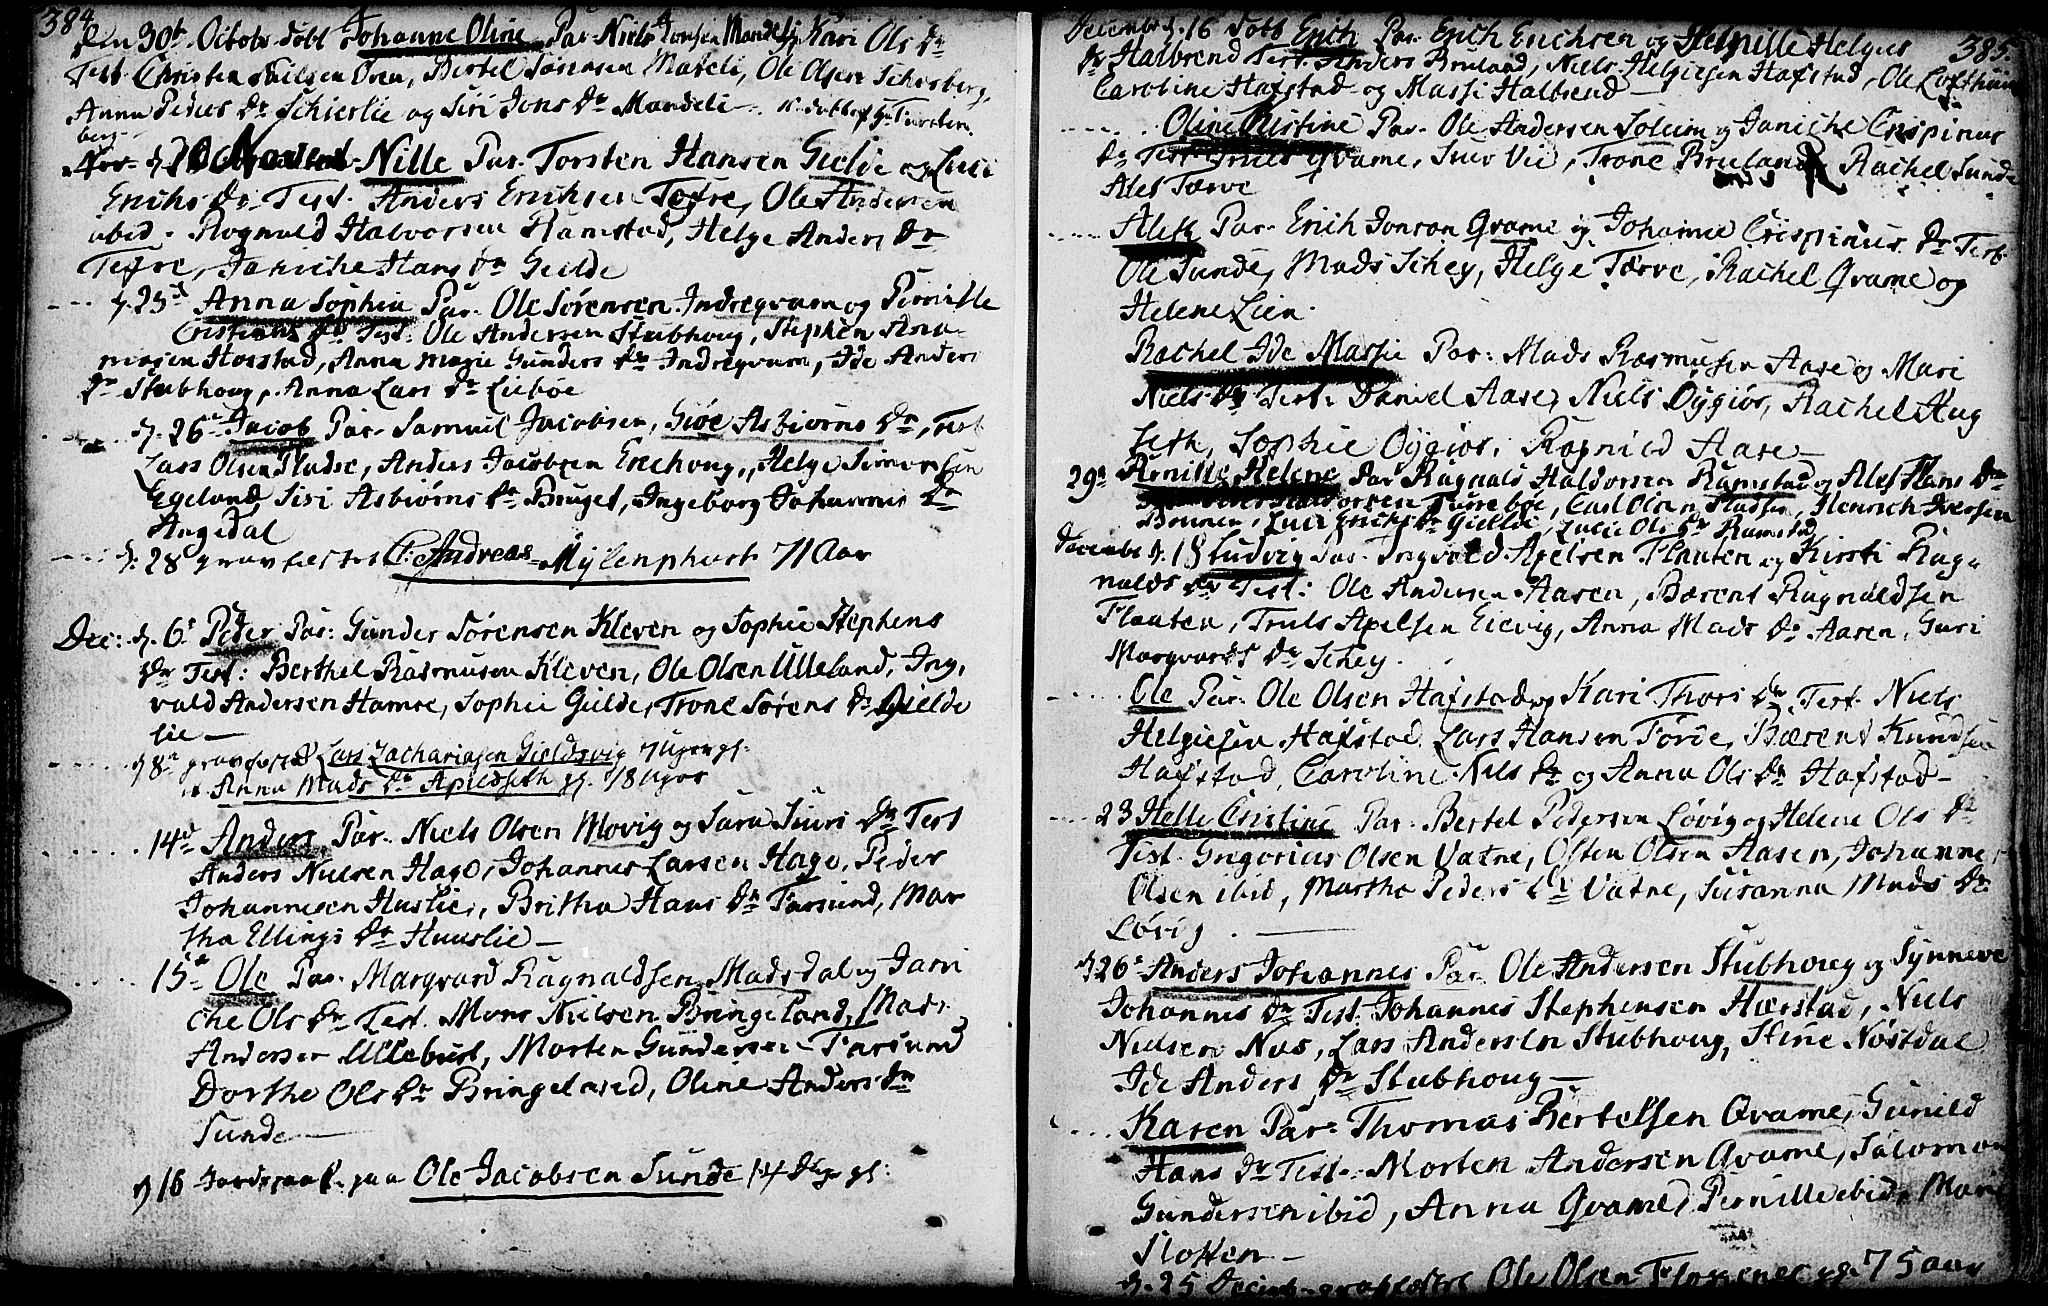 384
Den 30t. Octobr døbt Johanne Oline Par. Niels Jonsen Mandeli, Kari Ols Dr
Test. Christen Nielsen Øren, Bertel Sørensen Mateli, Ole Olsen
Anna Peders Dr Schierlie og Siri Jons Dr Mandeli
berg
Nov. d. Nille Par. Torsten Hansen Gielde og Luci
Erichs Dr Test. Anders Erichsen Tefre, Ole Andersen
ibid. Rognald Halvorsen Ramstad, Helge Anders Dr
Tefre, Janiche Hans Dr Gielde
d. 25d Anna Sophia Par. Ole Sørensen Indreqvam og Pernille
Cristians Dr. Test. Ole Andersen Stubhoug, Stephen Ana-
niasen Horstad, Anna Marie Gunders Dr Indreqvam, Ide Anders
Dr Stubhoug, Anna Lars Dr Liebøe
d. 26t Jacob Par. Samuel Jacobsen, Giøe Asbiørns Dr, Test
Lars Olsen Fladse, Anders Jacobsen Erichoug, Helge Simonsen
Egeland, Siri Asbiørns Dr Bruget, Ingeborg Johannis Dr
Angedal
d. 28 gravfæstet C. Andreas Mylenphort 71 Aar
Dec: d. 6t Peder Par: Gunder Sørensen Kleven og Sophie Stephens
Dr Test: Berthel Rasmusen Kleven, Ole Olsen Ulleland, Ing,
vald Andersen Hamre, Sophie Gielde, Trone Sørens Dr Gielde
lie —
d 8n gravfæstet Lars Zachariasen Gieldsvig 7 Uger gl.
" Anna Mads Dr Apildseth gl. 18 Uger
14d Anders Par. Niels Olsen Movig og Sara Siuri Dr Test
Anders Nielsen Hage, Johannes Larsen Hage, Peder
Johannesen Huslie, Britha Hans Dr Farsund, Mar
tha Ellings Dr Huuslie —
15d Ole Par. Marqvard Ragnaldsen Madsdal og Jani
che Ols Dr Test. Mons Nielsen Bringeland, Mads
Andersen Ullebust, Morten Gundersen Farsund
Dorthe Ols Dr Bringeland, Oline Anders Dr
Sunde —
d 16 paa Ole Jacobsen Sunde 14 Dage gl:
385.
Decembr d. 16 døbt Erich Par. Erich Erichsen og Helgies
Dr Halbrend Test. Anders Bruland, Niels Helgiesen Hafstad, Ole Lofthuus
Caroline Hafstad og Massi Halbrend
Oline Kistine Par. Ole Andersen Soleim og Janiche Crispinus
Dr Test. Truls Qvame, Siur Vie, Trone Bruland, Rachel Sunde
Ales Tærve
Aleth Par. Erich Jonson Qvame og Johanne Crispinus Dr Test.
Ole Sunde, Mads Schey, Helge Tærve, Rachel Qvame og
Helene Lien.
Rachel Ide Massie Par: Mads Rasmusen Aase og Mari
Niels Dr Test. Daniel Aase, Niels Øygiør, Rachel Hug
seth, Sophie Øygiør, Ragnild Aase —
29d Pernille Helene Par Ragnald Haldorsen Ramstad og Ales Hans Dr
Haldorsen Furrebøe, Carl Olsen Fladse, Henrich Iversen
Brunen, Luci Erichs Dr Gielde, Lucie Ols Dr Ramstad
December d. 18 Ludvig Par. Ingvald Apelsen Flaaten og Kirsti Rag-
nalds Dr Test: Ole Andersen Aasen, Bærent Ragnaldsen
Flaaten, Truls Apelsen Eievig, Anna Mads Dr Aasen, Guri
Marqvards Dr Schey.
Ole Par. Ole Olsen Hafstad og Kari Thors Dr Test. Niels
Helgiesen Hafstad, Lars Hansen Førde, Bærent Knudsen
Hafstad, Caroline Niels Dr og Anna Ols Dr Hafstad —
23 Helle Cristine Par. Bertel Pedersen Løvig og Helene Ols Dr
Test. Gregorius Olsen Vatne, Osten Olsen Aasen, Johannes
Olsen ibid, Martha Peders Dr Vatne, Susanna Mads Dr
Løvig.
d 26t Anders Johannes Par. Ole Andersen Stubhoug og Synneve
Johannes Dr Test. Johannes Stephensen Hærstad, Niels
Nielsen Nas, Lars Andersen Stubhoug, Stine Nøstdal
Ide Anders Dr Stubhoug —
Karen Par. Thomas Bertelsen Qvame, Gunild
Hans Dr Test. Morten Andersen Qvame, Salomon
Gundersen ibid, Anna Qvame, Pernille ibid, Mari
Slotten —
d. 25 Decemb gravfæstet Ole Olsen gl. 75 aar